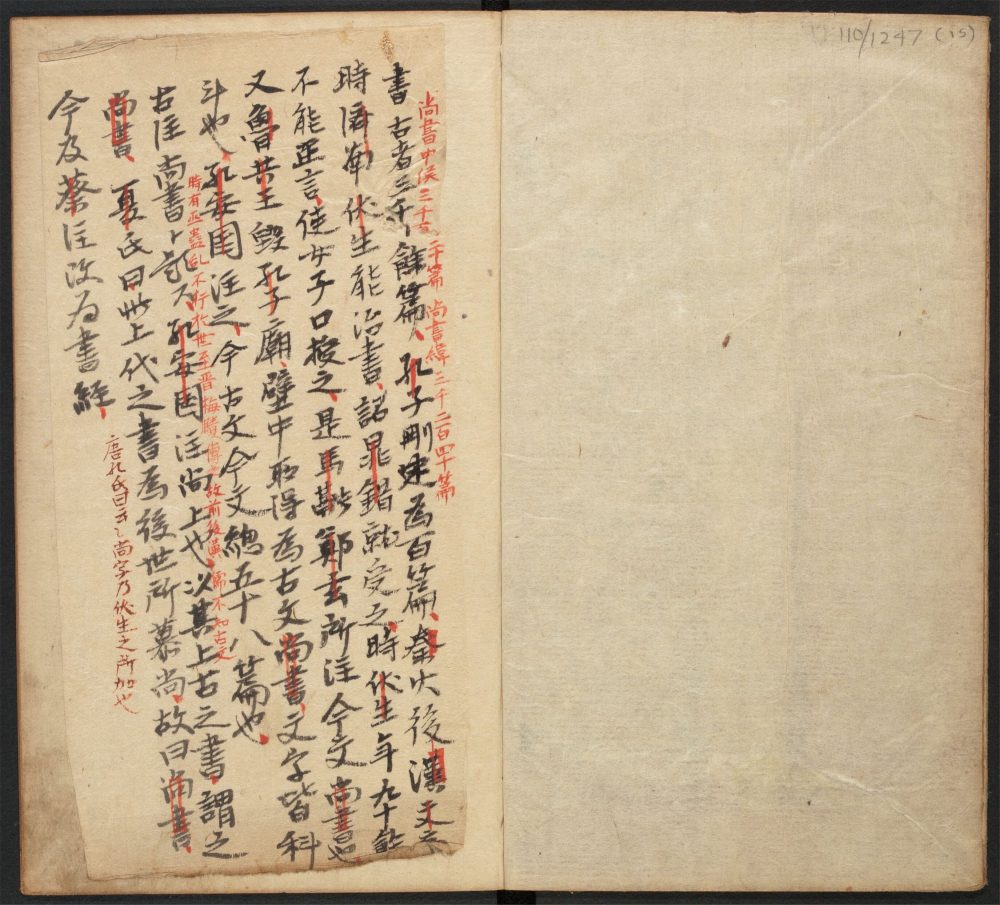 110/1247 (15)
尚書中侯三千
二千篇 尚書緯三千二百四十篇
書 古者三千餘篇孔子刪定為百篇秦火後漢文帝
時濟南伏生能治書詔晁錯就受之時伏生年九十餘
不能正言使女子口授之是馬融鄭玄所注今文尚書也
又魯共王毀孔子廟壁中取得為古文尚書文字皆科
斗也孔安国注之今古文今文總五十八篇也
時有巫蠱乱不行於世至晋梅賾傳之故前後漢儒不知古文
古注尚書ト題ス孔安国注尚上也以其上古之書謂之
尚書 夏氏曰此上代之書為後世所慕尚故曰尚書
今及蔡注改为書經
唐孔氏曰云々尚字乃伏生之所加也